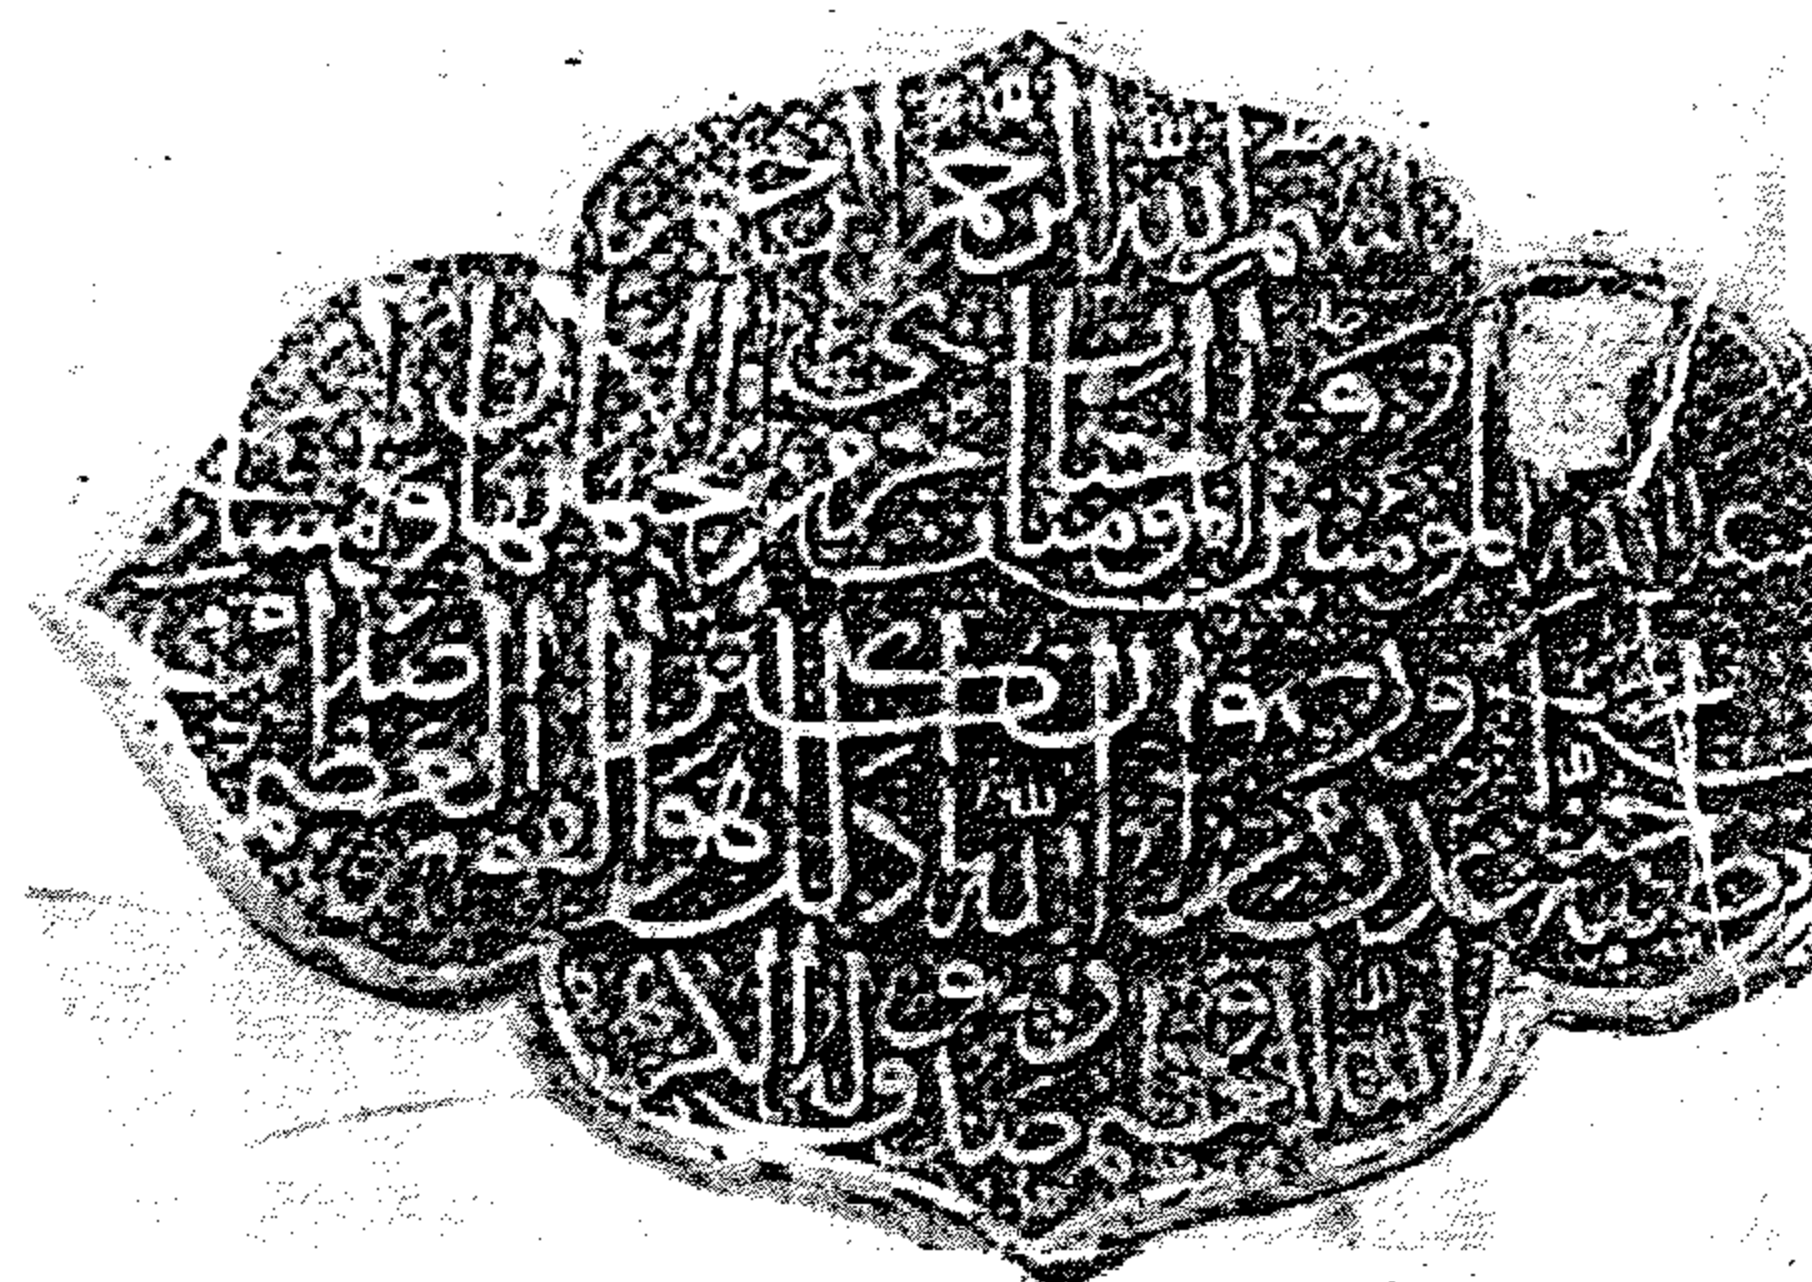 بسم الله الرحمن الرحيم
وعد الله المومنين والمومنات جنات تجرى من تحتها الانهار خالدين فيها ومساكن
طيبة فى جنات عدن ورضوان من الله اكبر ذلك هو الفوز العظيم
صدق الله العظيم وصدق رسوله الكريم